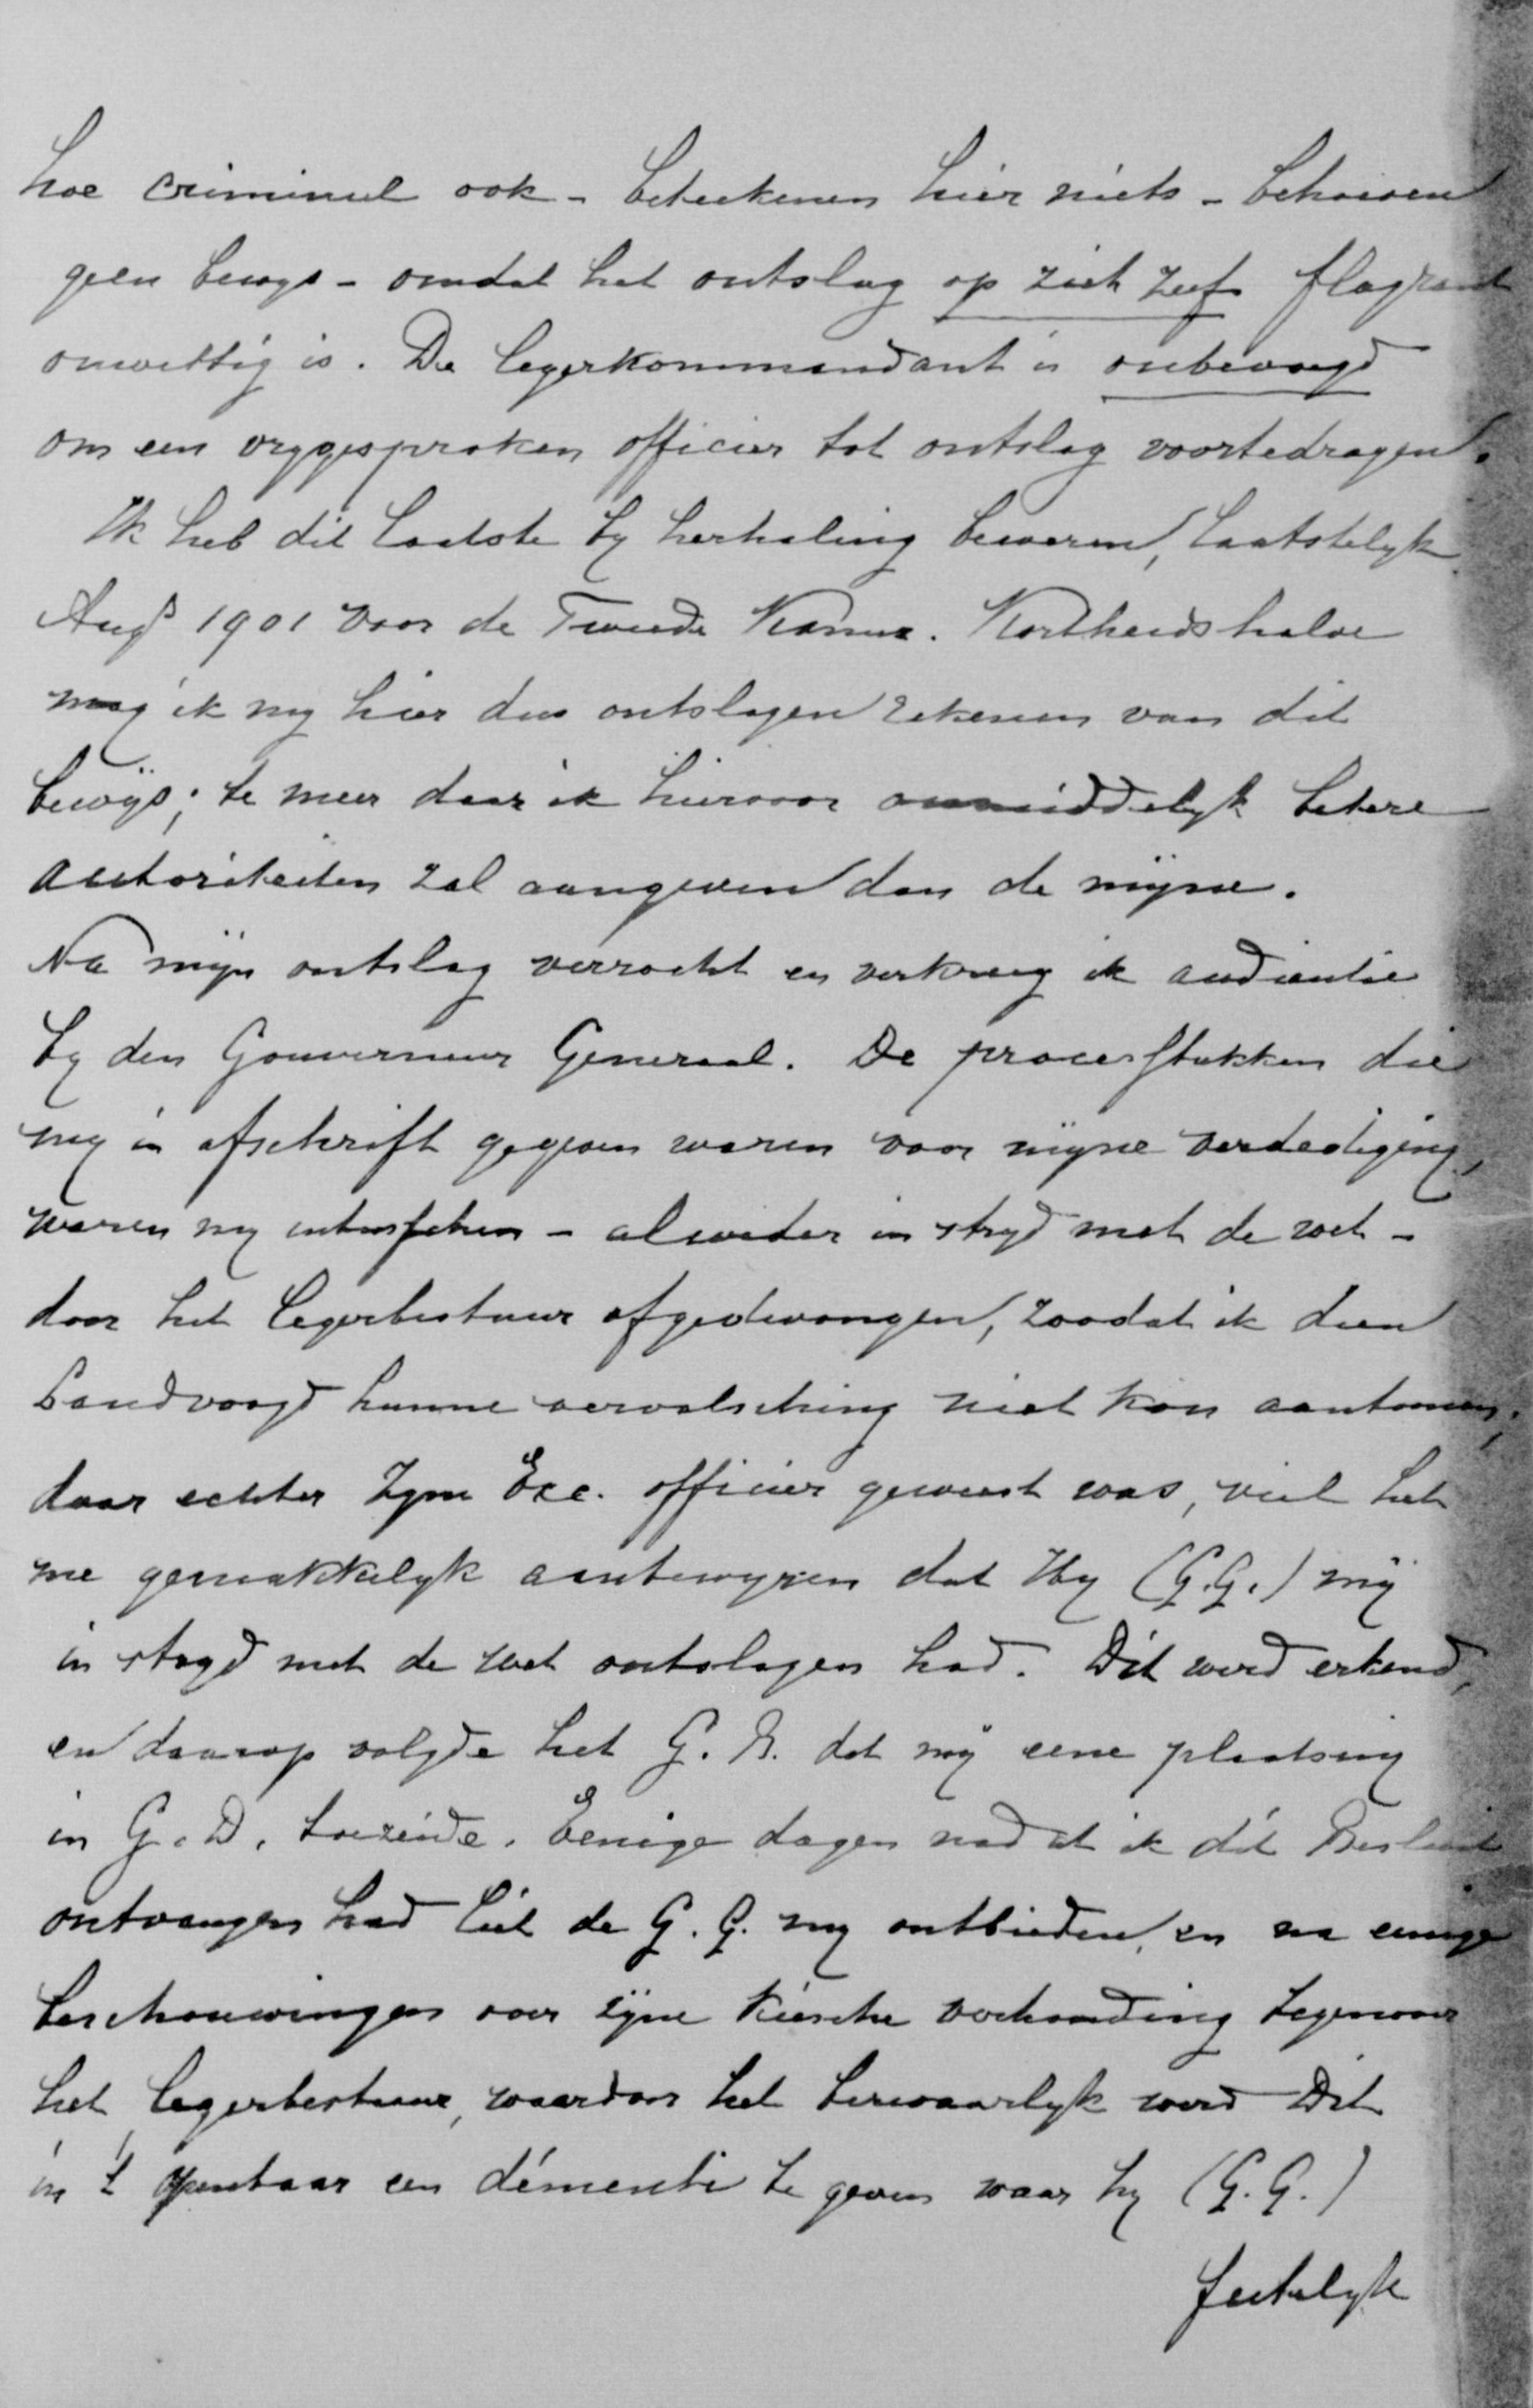 hoe crimineel ook - beteekenen hier niets - behoeven
geen bewys - omdat het ontslag op zich zelf flagrant
onwettig is. De legerkommandant is onbevoegd
om een vrygesproken officier tot ontslag voortedragen.
Ik heb dit laatste by herhaling bewezen, laatstelyk
Augs 1901 voor de Tweede Kamer. Kortheidshalve
mag ik my hier dus ontslagen rekenen van dit
bewijs; te meer daar ik hiervoor onmiddelyk betere
autoriteiten zal aangeven dan de mijne.
Na mijn ontslag verzocht en verkreeg ik audientie
by den Gouverneur Generaal. De processtukken die
my in afschrift gegeven waren voor mijne verdediging,
waren my intusschen - alweder in stryd met de wet -
door het legerbestuur afgedwongen, zoodat ik dien
Landvoogd hunne vervalsching niet kon aantoonen;
daar echter Zyne Exc. officier geweest was, viel het
me gemakkelyk aantewyzen dat Hy (G.G.) mij
in stryd met de wet ontslagen had. Dit werd erkend,
en daarop volgde het G. B. dat mij eene plaatsing
in G. D. toezeide. Eenige dagen nadat ik dit Besluit
ontvangen had liet de G. G. my ontbieden, en na eenige
beschouwingen over zijne kiesche verhouding tegenover
het legerbestuur, waardoor het bezwaarlyk werd Dit
in 't openbaar een démenti te geven waar hy (G. G.)
feitelyk